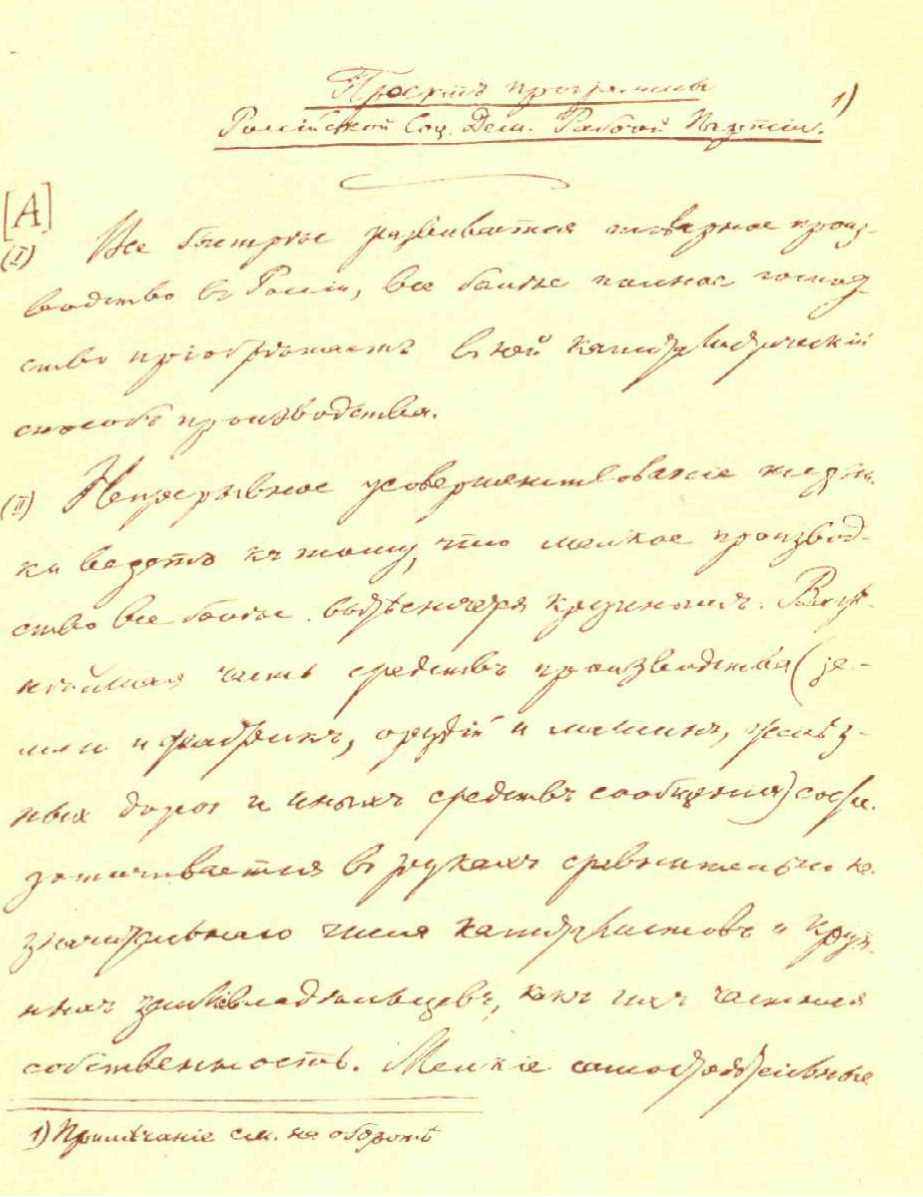 Проектъ программы
Россiйской Соц. Дем. Рабочей Партiи. 1)
[A]
(I) Все быстрѣе развивается товарное произ-
водство въ Россiи, все болѣе полное господ-
ство прiобрѣтаетъ въ ней капиталистическiй
способъ производства.
(II) Непрерывное усовершенствованiе техни-
ки ведетъ къ тому, что мелкое производ-
ство все болѣе вытѣсняется крупнымъ. Важ-
нѣйшая часть средствъ производства (зе-
мли и фабрикъ, орудiй и машинъ, желѣз-
ныхъ дорогъ и иныхъ средствъ сообщенiя) сосре-
доточивается въ рукахъ сравнительно не-
значительнаго числа капиталистовъ и круп-
ныхъ землевладѣльцевъ, какъ ихъ частная
собственность. Мелкiе самостоятельные
1) Примѣчанiе см. на оборотѣ